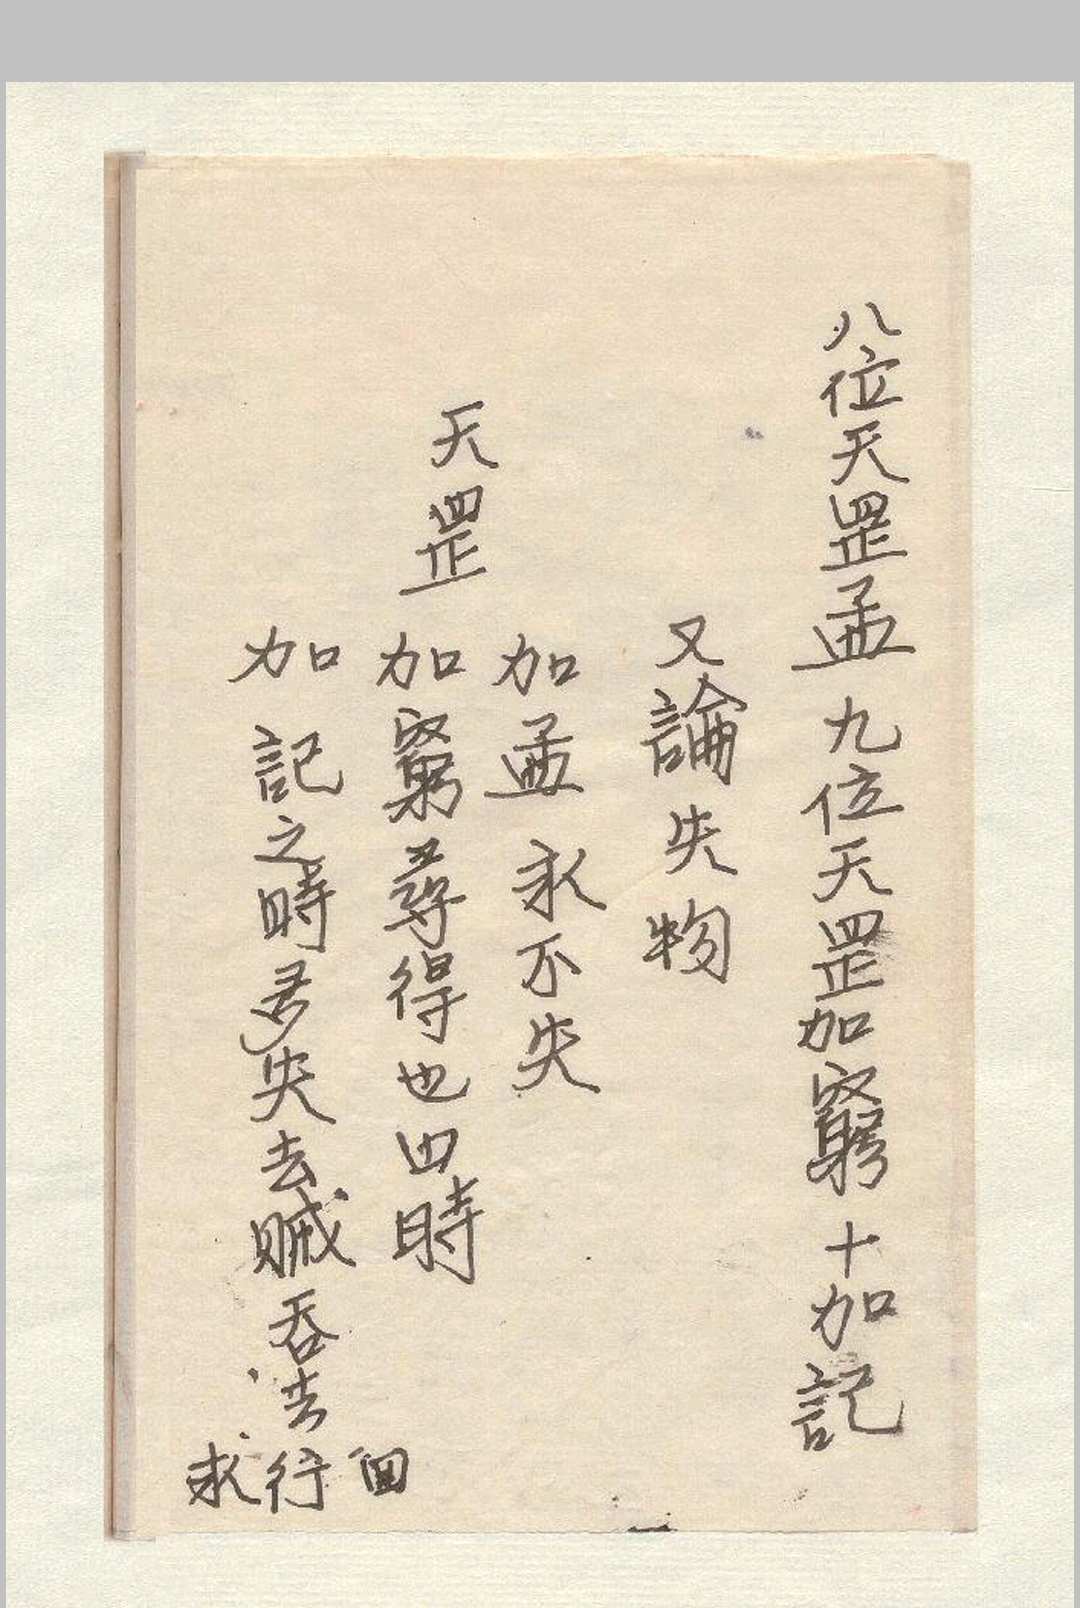 八位天罡孟九位天罡加窮十加記
又論失物
加孟求不失
天罡
加窮尋得也四時
加記之時多失去賊吞去行
求
回